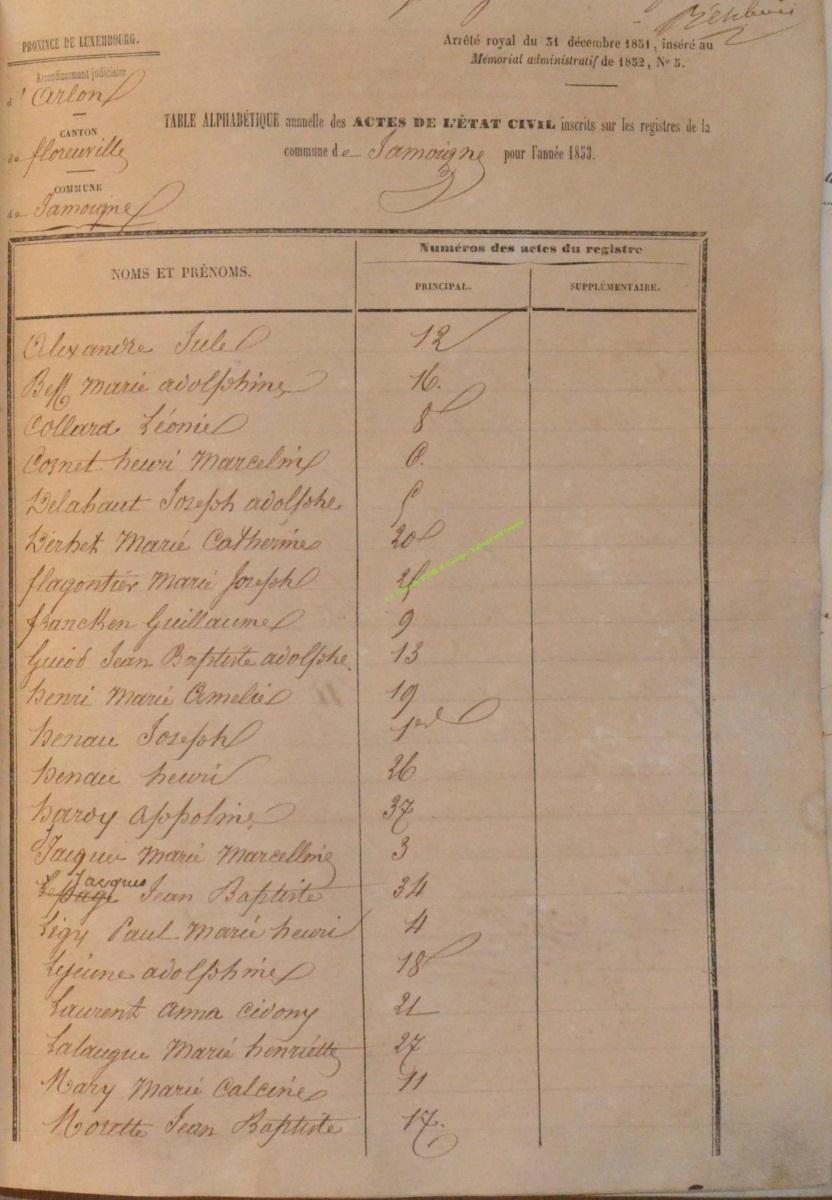 PROVINCE DE LUXEMBOURG.
Arrondissement judiciaire
d'Arlon
CANTON
de florenville
COMMUNE
de Jamoigne
Arrêté royal du 31 décembre 1851, inséré au
Mémorial administratif de 1852, N° 5.
TABLE ALPHABÉTIQUE annuelle des ACTES DE L'ÉTAT CIVIL inscrits sur les registres de la
commune de Jamoigne pour l'année 1853.
NOMS ET PRÉNOMS.
Numéros des actes du registre
PRINCIPAL.
SUPPLÉMENTAIRE.
Alexandre Jule 12
Marie adolphine 16.
Collard Léonie 8
Cosnet henri Marcelin 6.
Delahaut Joseph adolphe
Marie Catherine 20
flagontier Marie Joseph
francken Guillaume 9
Guiod Jean Baptiste adolphe 13
henri Marie Amelie 19
henau Joseph 1er
henau henri 26
hardy Appoline 37
Jacque Marie Marcelline 3
Jacques
Lepage Jean Baptiste 34
Légy Paul Marie henri 4
Lejeune adolphine 18
Laurent Anna Cidony 21
Lalangue Marie henriette 27
Mary Marie Calcine 11
Morette Jean Baptiste 17.